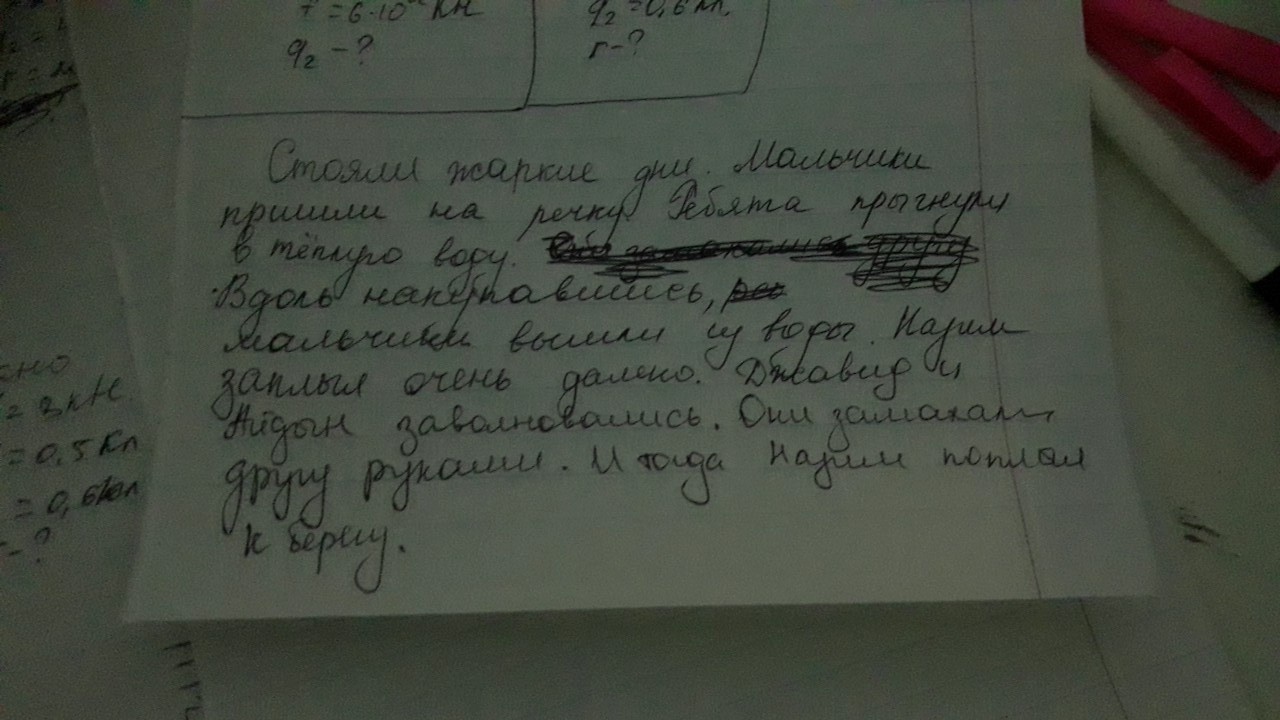 q₂ = 0,6 Кл.
q₂ - ?
r - ?
Стояли жаркие дни. Мальчики
пришли на речку. Ребята прыгнули
в тёплую воду.
Вдоль накупавшись,
мальчики вышли из воды. Назим
заплыл очень далеко. Джавид и
Айдын заволновались. Они замахали
другу руками. И тогда Назим поплыл
к берегу.
= 0,5 Кл
- ?